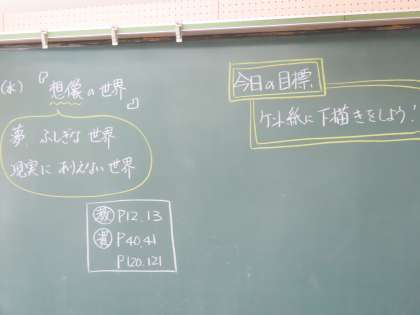 (水)『想像の世界』
夢、ふしぎな世界
現実にありえない世界
教 P12.13
資 P40.41
P120.121
今日の目標
ケント紙に下描きをしよう!